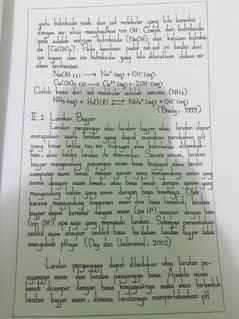 yaitu hidroksida dan zat molekuler yang bila bereaksi
dengan air akan menghasilkan ion OH⁻. Contoh dari hidroksida
ionik adalah natrium hidroksida (NaOH) dan kalsium hidroksi-
da (Ca(OH)₂). Pada keadaan padat zat-zat ini terdiri dari
ion logam dan ion hidroksida yang bila dilarutkan dalam air
akan terdisosiasi.
NaOH (s) → Na⁺ (aq) + OH⁻ (aq)
Ca(OH)₂ (s) → Ca²⁺ (aq) + 2OH⁻ (aq)
Contoh basa dari zat molekuler adalah amonia (NH₃)
NH₃ (aq) + H₂O (l) ⇌ NH₄⁺ (aq) + OH⁻ (aq)
(Brady, 1999)
II.2 Larutan Buffer
Larutan penyangga atau larutan buffer atau larutan dapar
merupakan suatu larutan yang dapat menahan perubahan pH
yang besar ketika ion-ion hidrogen atau hidroksida ditambah-
kan, atau ketika larutan itu diencerkan. Secara umum, larutan
buffer mengandung pasangan asam-basa konjugat atau terdiri
campuran asam lemah dengan garam yang mengandung anion yang
sama dengan asam lemah, atau basa lemah dengan garam yang
mengandung kation yang sama dengan basa lemahnya. Oleh
karena mengandung komponen asam dan basa tersebut, larutan
buffer dapat bereaksi dengan asam (ion H⁺) maupun dengan basa
(ion OH⁻) apa saja yang memasuki larutan. Sehingga penambahan
sedikit asam ataupun sedikit basa ke dalam larutan buffer tidak
mengubah pHnya (Day dan Underwood, 2002).
Larutan penyangga dapat dibedakan atas larutan pe-
nyangga asam dan larutan penyangga basa. Apabila asam
lemah dicampur dengan basa konjugasinya maka akan terbentuk
larutan buffer asam, dimana larutannya mempertahankan pH